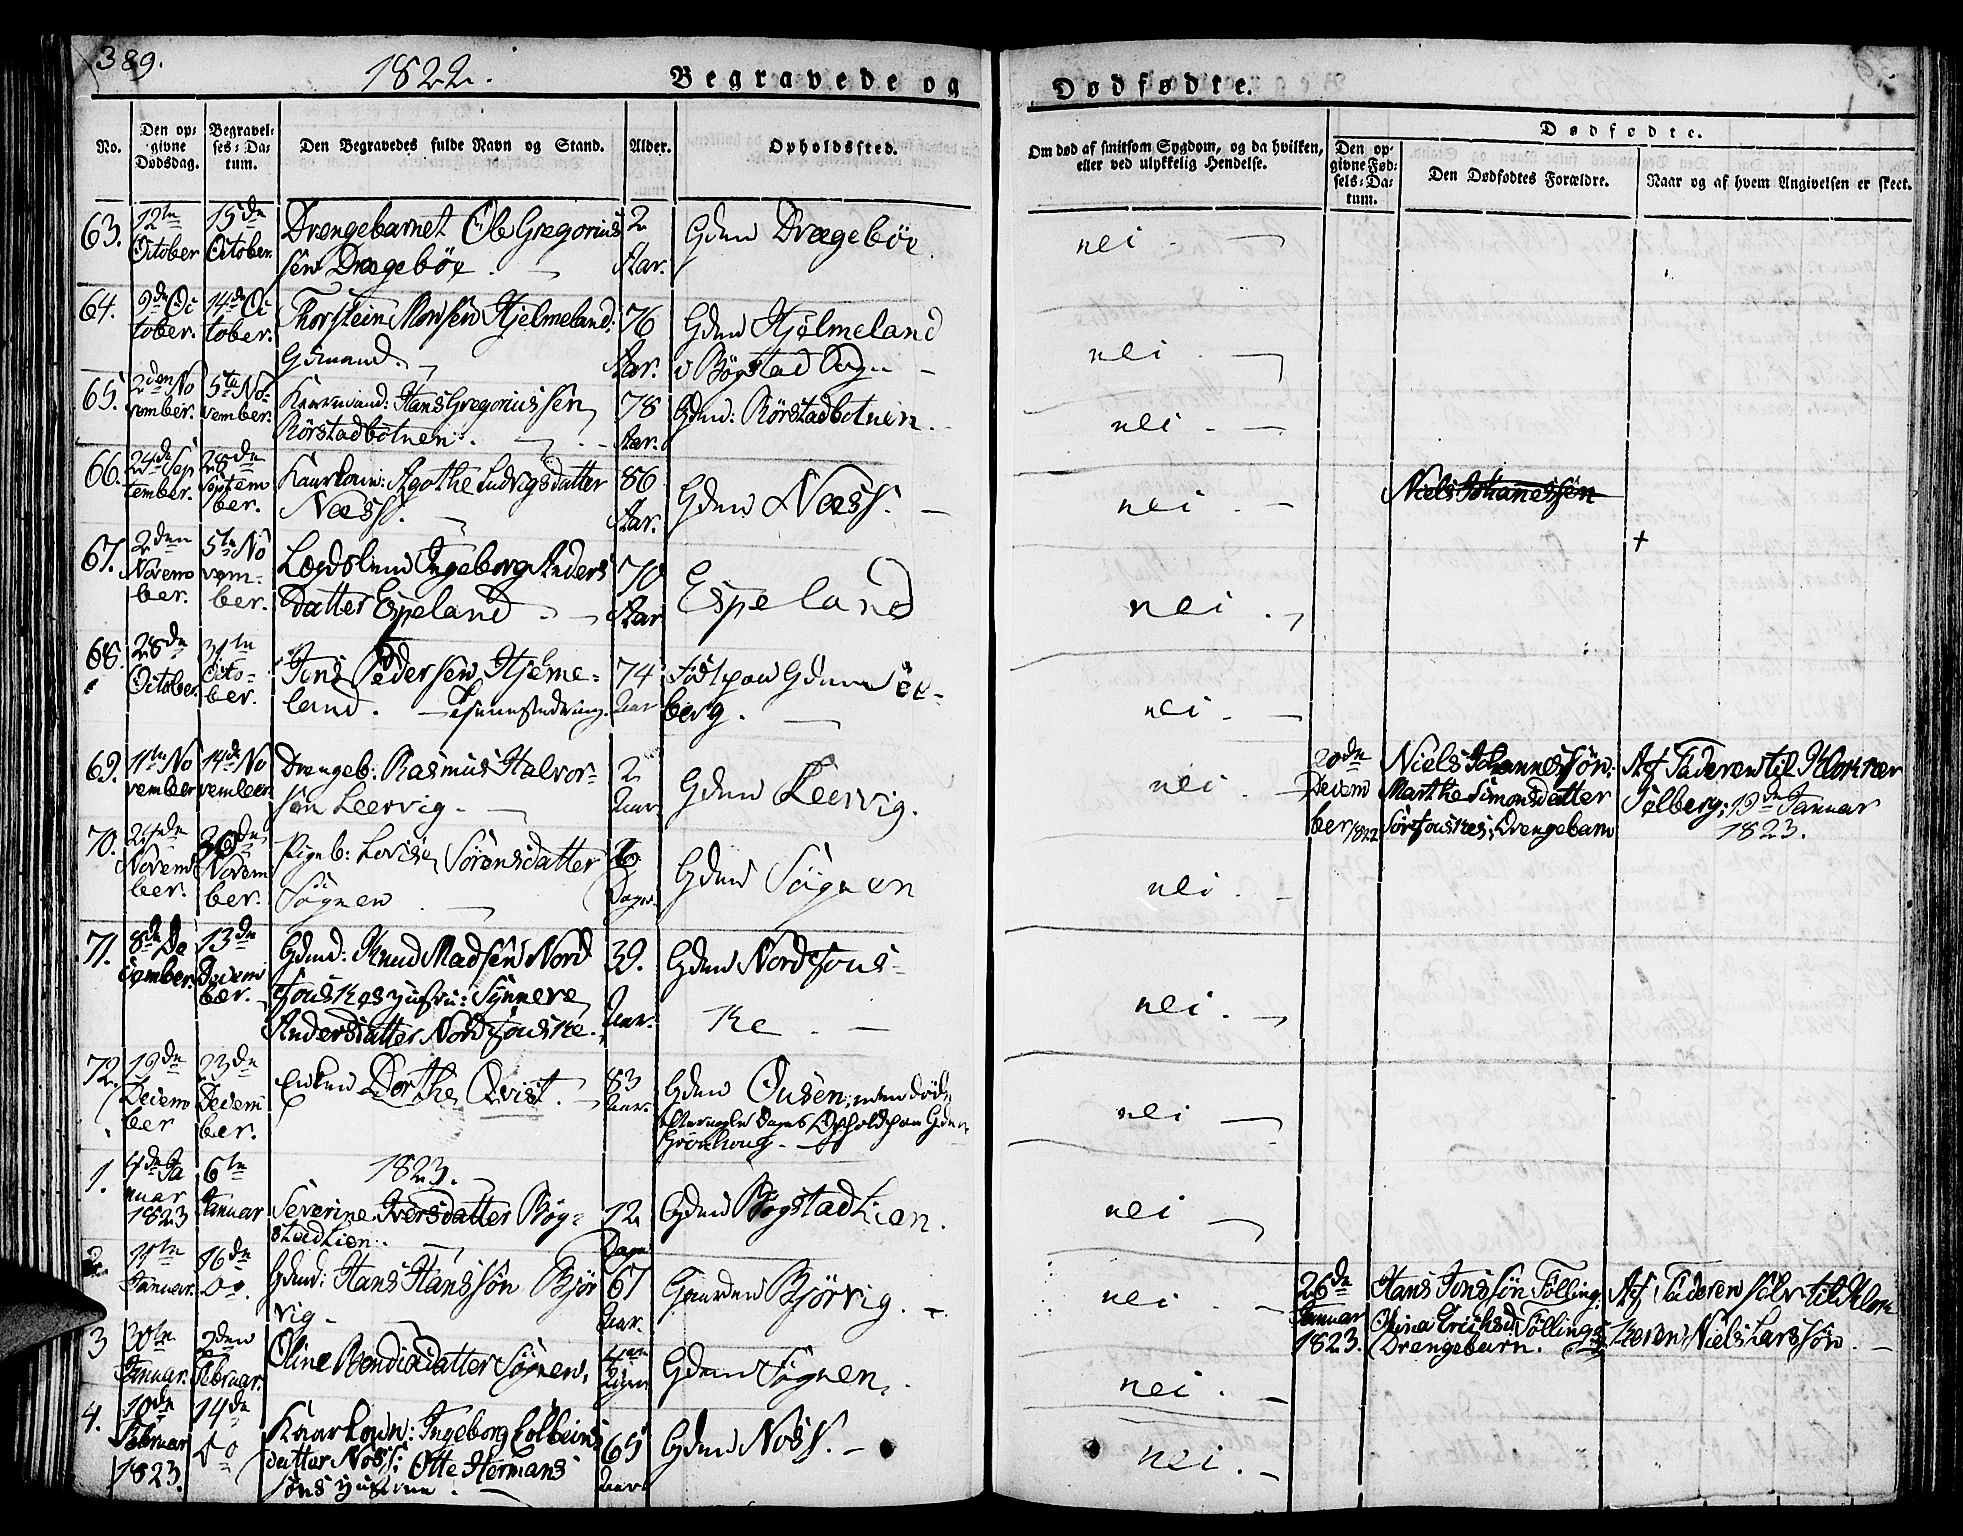 389.
1822.
Begravede og
Dødfødte.
No.
Den op-
givne
Dødsdag.
Begravel-
ses-Da-
tum.
Den Begravedes fulde Navn og Stand.
Alder.
Opholdssted.
Om død af smitsom Sygdom, og da hvilken,
eller ved ulykkelig Hendelse.
Dødfødte.
Den op-
givne Fød-
sels-Da-
tum.
Den Dødfødtes Forældre.
Naar og af hvem Angivelsen er skeet.
63.
12te
October
15de
October
Drengebarnet Ole Gregorius
sen Drægebøe.
2
Aar.
Gden Drægebøe.
nei.
64.
9de Oc
tober.
14de Oc
tober.
Thorstein Monsen Hjelmeland:
Gdmand.
76
Aar.
Gden Hjelmeland
nei.
65.
2den No
vember.
5te No-
vember.
Hans Gregoriussen
Rörstadbotnen.
78
Aar.
Gden: Rörstadbotnen.
nei.
66.
24de Sep
tember.
28de
Septem
ber.
Agothe Ludvigsdatter
Næss.
86
Aar.
Gden Næss.
nei.
Niels Johanessen
67.
2den
Novem
ber.
5te No
vem-
ber.
Ingeborg Anders
datter Espeland.
70
Aar
Espeland
nei.
+
68.
28de
October.
31te
Octo-
ber.
Jens Pedersen Hjeme-
land.
74
Aar
berg.
nei.
69.
11te No
vember
14de No
vember.
Drengeb: Rasmus Halvor-
sen Leervig.
2
Aar
Gden Leervig.
nei.
20de
Decem
ber 1822
Niels Johannessøn:
Marthe Simonsdatter
Sørefouskes; Drengebarn
Af Faderen til Klokker
Solberg; 19de Januar
1823.
70.
24de
Novem
ber.
30de
Novem
ber.
Pigeb: Lovise Sørensdatter
Søgnen
Dage.
Gden Søgnen
nei.
71.
8de De
cember.
13de
Decem
ber.
Gdmd: Knud Madsen Nord
fouskes Hustru: Synneve
Andersdatter Nordfouske.
39.
Aar.
Gden Nordfous-
ke.
nei.
72.
19de
Decem
ber
23de
Decem
ber.
Enken Dorthe Qvist.
83
Aar.
Gden Ousen; men død
nei
1.
4de Ja
nuar
1823
6te
Januar
1823.
Severine Iversdatter Bøg-
stadlien.
12
Dage
Gden Bøgstadlien.
nei
2.
11te
Januar.
16de
do.
Gdmd: Hans Hanssøn Bjør
vig.
67
Aar.
Gaarden Bjørvig.
nei.
26de
Januar
1823.
Hans Jonssøn Følling.
Olina Erichsd Søllings
Drengebarn.
Af Faderen selv til Klok
keren Niels Larssøn.
3
30te
Januar.
2den
Februar.
Oline Bendixdatter Søgnen,
Gden Søgnen.
nei.
4.
10de
Februar
1823.
14de
do
Ingeborg Colbeins
datter Noss: Otte Hermans
søns Hustrue.
65
Aar
Gden Noss.
nei.